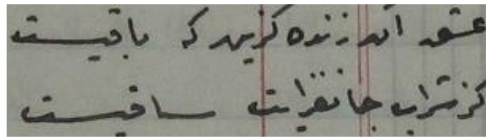 عشق آن زنده گزین که باقیست
کز شراب جانفزایت ساقیست